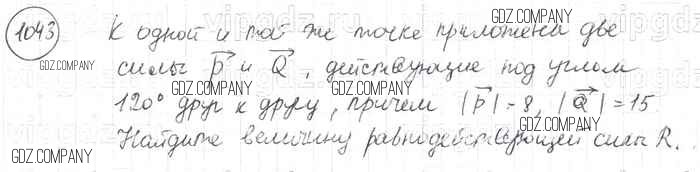 1043 К одной и той же точке приложены две
силы P и Q, действующие под углом
120° друг к другу, причем |P| = 8, |Q| = 15.
Найдите величину равнодействующей силы R.
GDZ.COMPANY
GDZ.COMPANY
GDZ.COMPANY
GDZ.COMPANY
GDZ.COMPANY
GDZ.COMPANY
GDZ.COMPANY